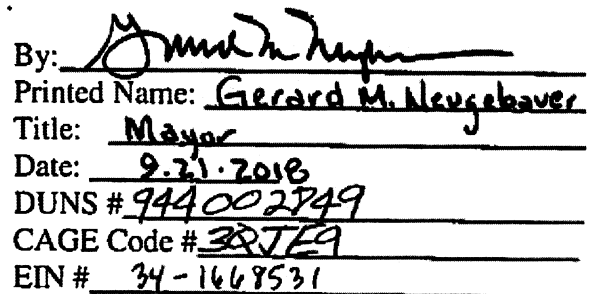 By:
Printed Name: Gerard M. Neugebauer
Title: Mayor
Date: 9.21.2018
DUNS # 944002749
CAGE Code # 3QJE9
EIN # 34-1668531